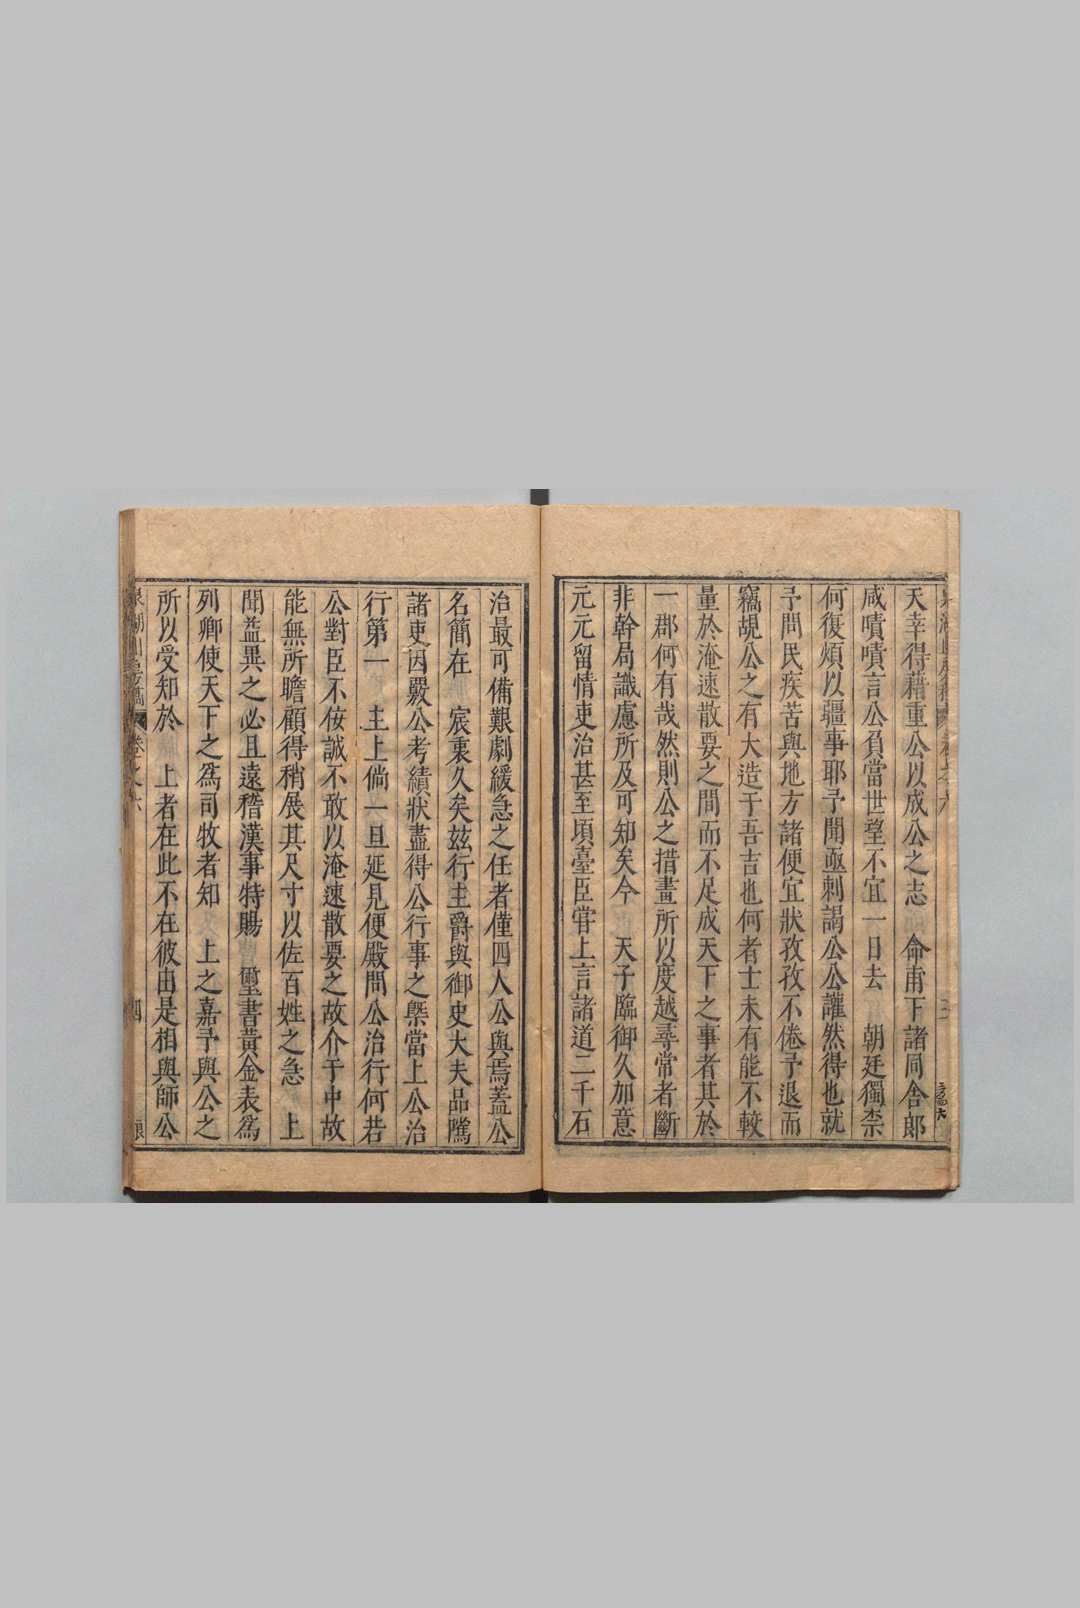 天幸得藉重公以成公之志　命甫下諸同舍郎
咸嘖嘖言公負當世望不宜一日去　朝廷獨柰
何復煩以疆事耶予聞亟刺謁公公讙然得也就
予問民疾苦與地方諸便宜狀孜孜不倦予退而
竊覘公之有大造于吾吉也何者士未有能不較
量於淹速散要之間而不足成天下之事者其於
一郡何有哉然則公之措畫所以度越尋常者斷
非幹局識慮所及可知矣今　天子臨御久加意
元元留情吏治甚至頃臺臣甞上言諸道二千石
治最可備艱劇緩急之任者僅四人公與焉蓋公
名簡在　宸衷久矣玆行主爵與御史大夫品隲
諸吏因覈公考績狀盡得公行事之槩當上公治
行第一　主上倘一旦延見便殿問公治行何若
公對臣不佞誠不敢以淹速散要之故介于中故
能無所瞻顧得稍展其尺寸以佐百姓之急　上
聞益異之必且遠稽漢事特賜　璽書黃金表爲
列卿使天下之爲司牧者知　上之嘉予與公之
所以受知於　上者在此不在彼由是相與師公
卷之六
四